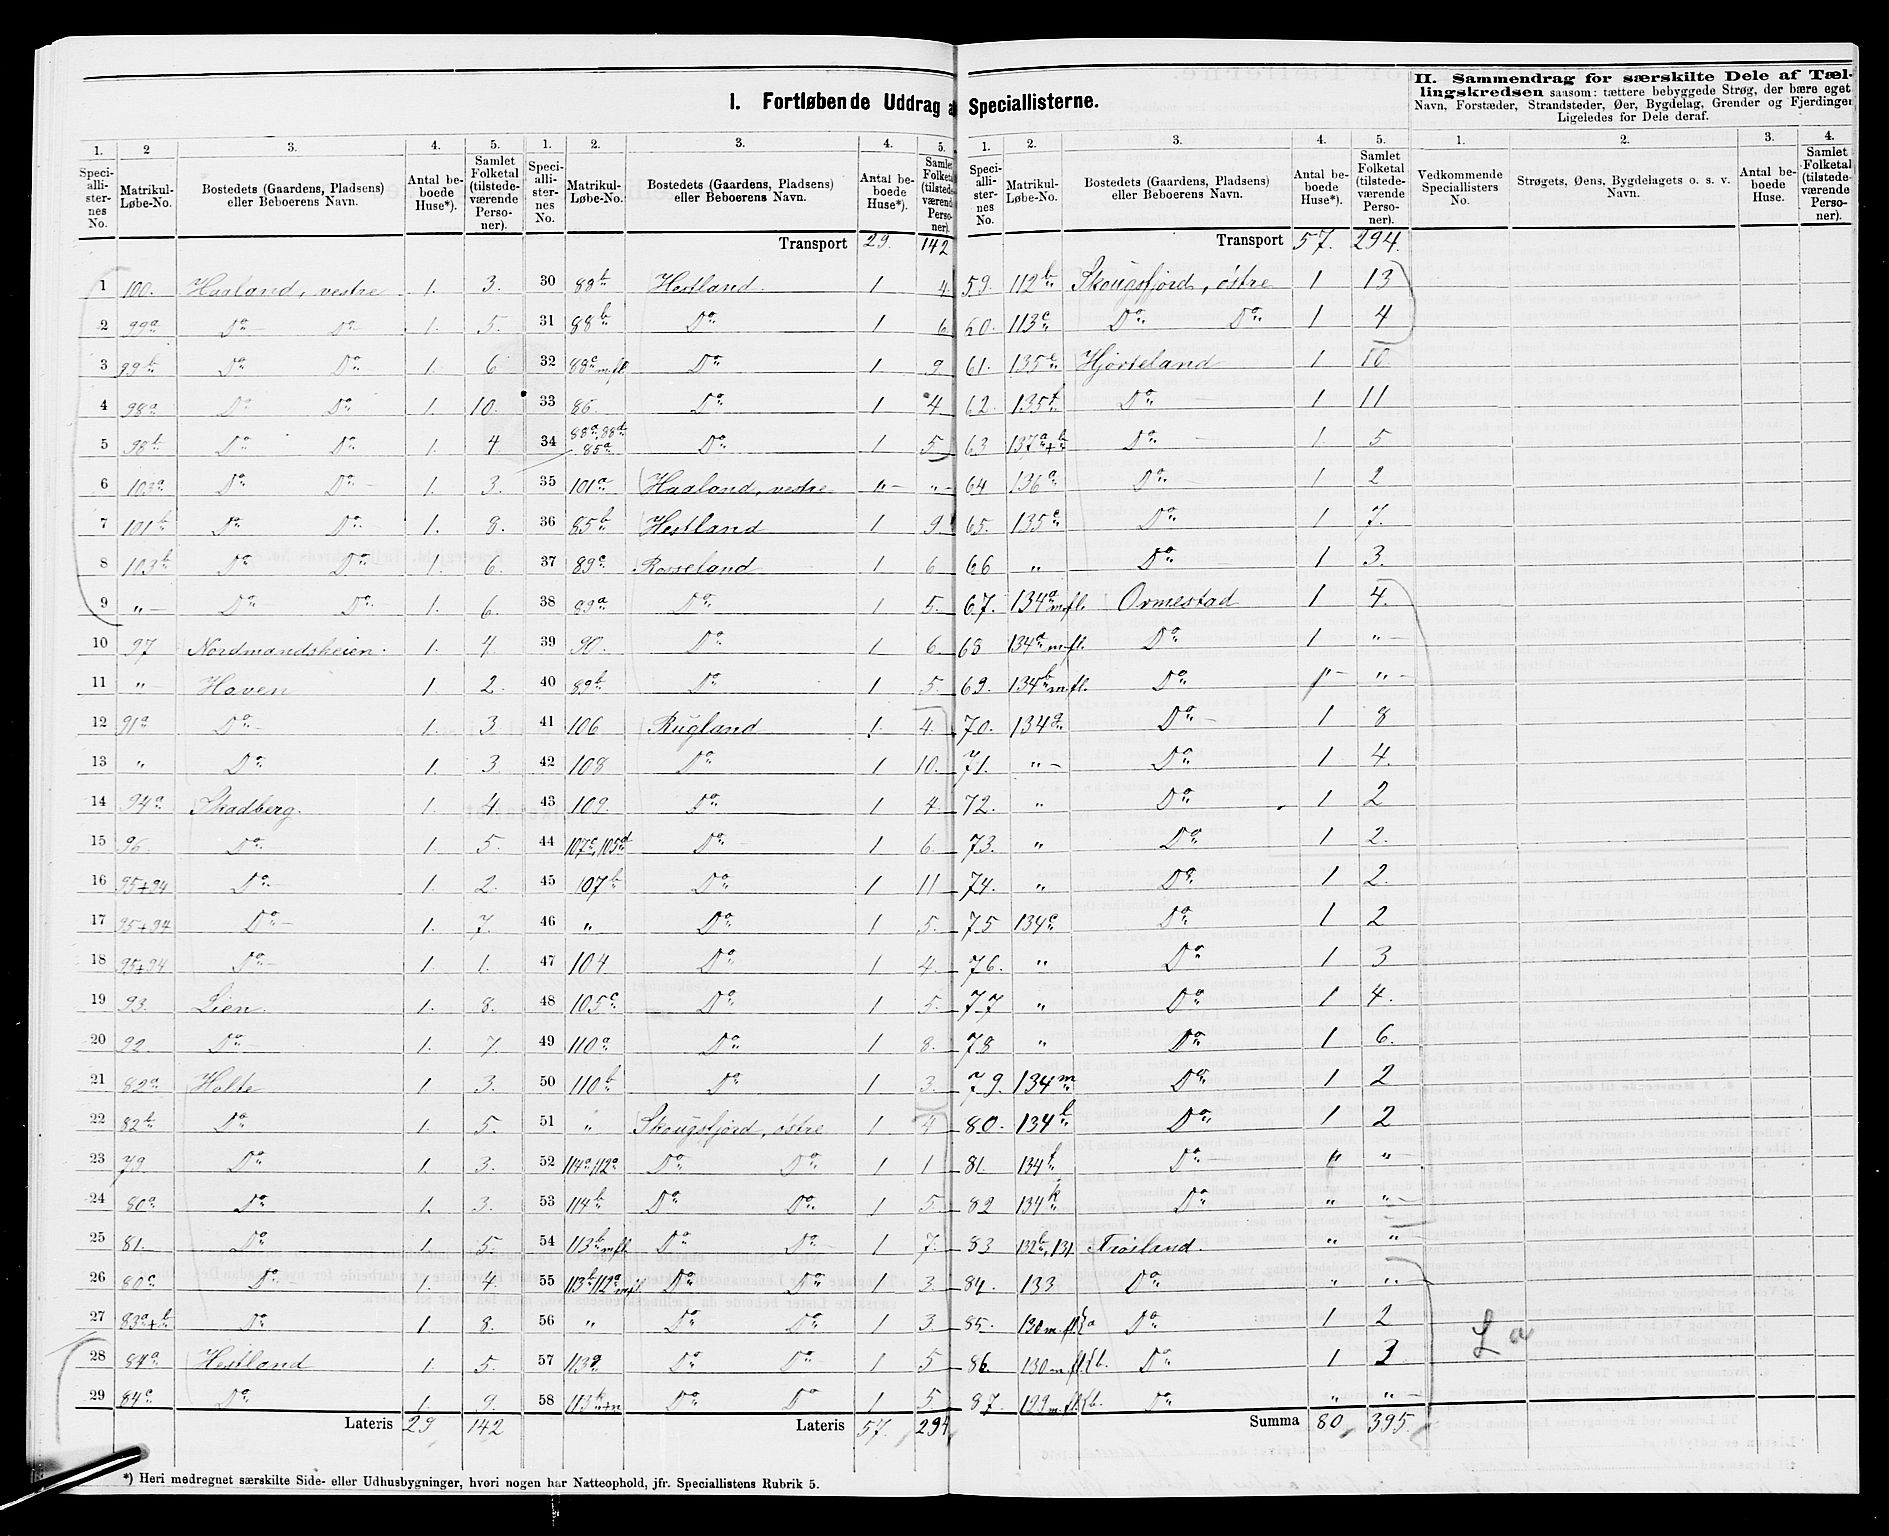 I. Fortløbende Uddrag a Speciallisterne.
II. Sammendrag for særskilte Dele af Tæl-
lingskredsen saasom: tættere bebyggede Strøg, der bære eget
Navn, Forstæder, Strandsteder, Øer, Bygdelag, Grender og Fjerdinger
Ligeledes for Dele deraf.
1. 2 3. 4. 5.
Speci-alli-ster-nes No. Matrikul-Løbe-No. Bostedets (Gaardens, Pladsens) eller Beboerens Navn. Antal be-boede Huse*). Samlet Folketal (tilstede-værende Perso-ner).
1 100. Haaland, vestre 1. 3.
2 99a Do Do 1. 5.
3 99b Do Do 1. 6
4 98a Do Do 1. 10.
5 98b Do Do 1. 4
6 103a Do Do 1. 3.
7 101b Do Do 1. 8.
8 103b Do Do 1. 6.
9 " Do Do 1. 6.
10 97 Nordmandsheien. 1. 4
11 " Haven 1. 2.
12 91a Do 1. 3
13 " Do 1. 3
14 94a Skadberg. 1. 4.
15 96 Do 1. 5.
16 95+94 Do 1. 2.
17 95+94 Do 1. 7.
18 95+94 Do 1. 1.
19 93. Lien. 1. 8.
20 92. Do 1. 7.
21 82a Holte 1. 3.
22 82b Do 1. 5.
23 79. Do 1. 3.
24 80a Do 1. 3.
25 81. Do 1. 5.
26 80c Do 1. 4.
27 83a+b Do 1. 8.
28 84a Hestland 1. 5.
29 84c Do 1. 9.
Lateris 29 142
1. 2. 3. 4. 5.
Speci-alli-ster-nes No. Matrikul-Løbe-No. Bostedets (Gaardens, Pladsens) eller Beboerens Navn. Antal be-boede Huse*). Samlet Folketal (tilstede-værend Perso-ner).
Transport 29. 142
30 88b Hestland. 1 4
31 88b Do 1 6
32 88c m.fl Do 1 9
33 86 Do 1 4
34 88a, 88d 85a Do 1 5
35 101a Haaland, vestre " "
36 85b Hestland 1 9
37 89c Rosseland 1 6
38 89a Do 1 5.
39 90. Do 1 6.
40 89b Do 1 5.
41 106 Rugland 1. 4.
42 108 Do 1 10.
43 109. Do 1 4.
44 107c, 105d Do 1 6.
45 107b Do 1 11
46 " Do 1 5.
47 104 Do 1 4.
48 105c Do 1 5.
49 110a Do 1 8.
50 110b Do 1 3.
51 " Skougsfjord, østre 1 4
52 114a, 112a Do Do 1 1
53 114b Do Do 1 5.
54 113b m.fl Do Do 1 7.
55 113b, 112a m.fl. Do Do 1 3.
56 " Do Do 1 3
57 113 Do Do 1 5
58 113 Do Do 1 5
Lateris 57. 294
1. 2. 3. 4. 5.
Speci-alli-ster-nes No. Matrikul-Løbe-No. Bostedets (Gaardens, Pladsens) eller Beboerens Navn. Antal be-boede Huse*). Samlet Folketal (tilstede-værende Perso-ner).
Transport 57. 294.
59. 112b Skougsfjord, østre 1 13
60. 113c Do Do 1 4
61. 135 Hjorteland 1 10.
62. 135 Do 1 11
63 137a+b Do 1 5
64 136a Do 1 2
65. 135c Do 1 7.
66 " Do 1 3.
67. 134a m.fl. Ormestad 1 4.
68 134a m.fl. Do 1 "
69. 134b m.fl. Do " "
70. 134g Do 1 8
71. " Do 1 4.
72. " Do 1 2
73. " Do 1 2.
74. " Do 1 2.
75 134c Do 1 2
76. " Do 1 3
77 " Do 1 4.
78 " Do 1 6.
79. 134m Do 1 2
80. 134 Do 1 2
81. 134 Do " "
82 134k Do " "
83 132b, 131 Trøsland. " "
84. 133 Do " "
85. 130 m.fl. a Do 1 2
86. 130 m.fl. b. Do 1 3
87. 129 m.fl. b. Do " "
Summa 80 395.
1. 2. 3. 4.
Vedkommende Speciallisters No. Strøgets, Øens, Bygdelagets o. s. v. Navn. Antal be-boede Huse. Samlet Folketal (tilstede-værende Perso-ner).
*) Heri medregnet særskilte Side- eller Udhusbygninger, hvori nogen har Natteophold, jfr. Speciallistens Rubrik 5.